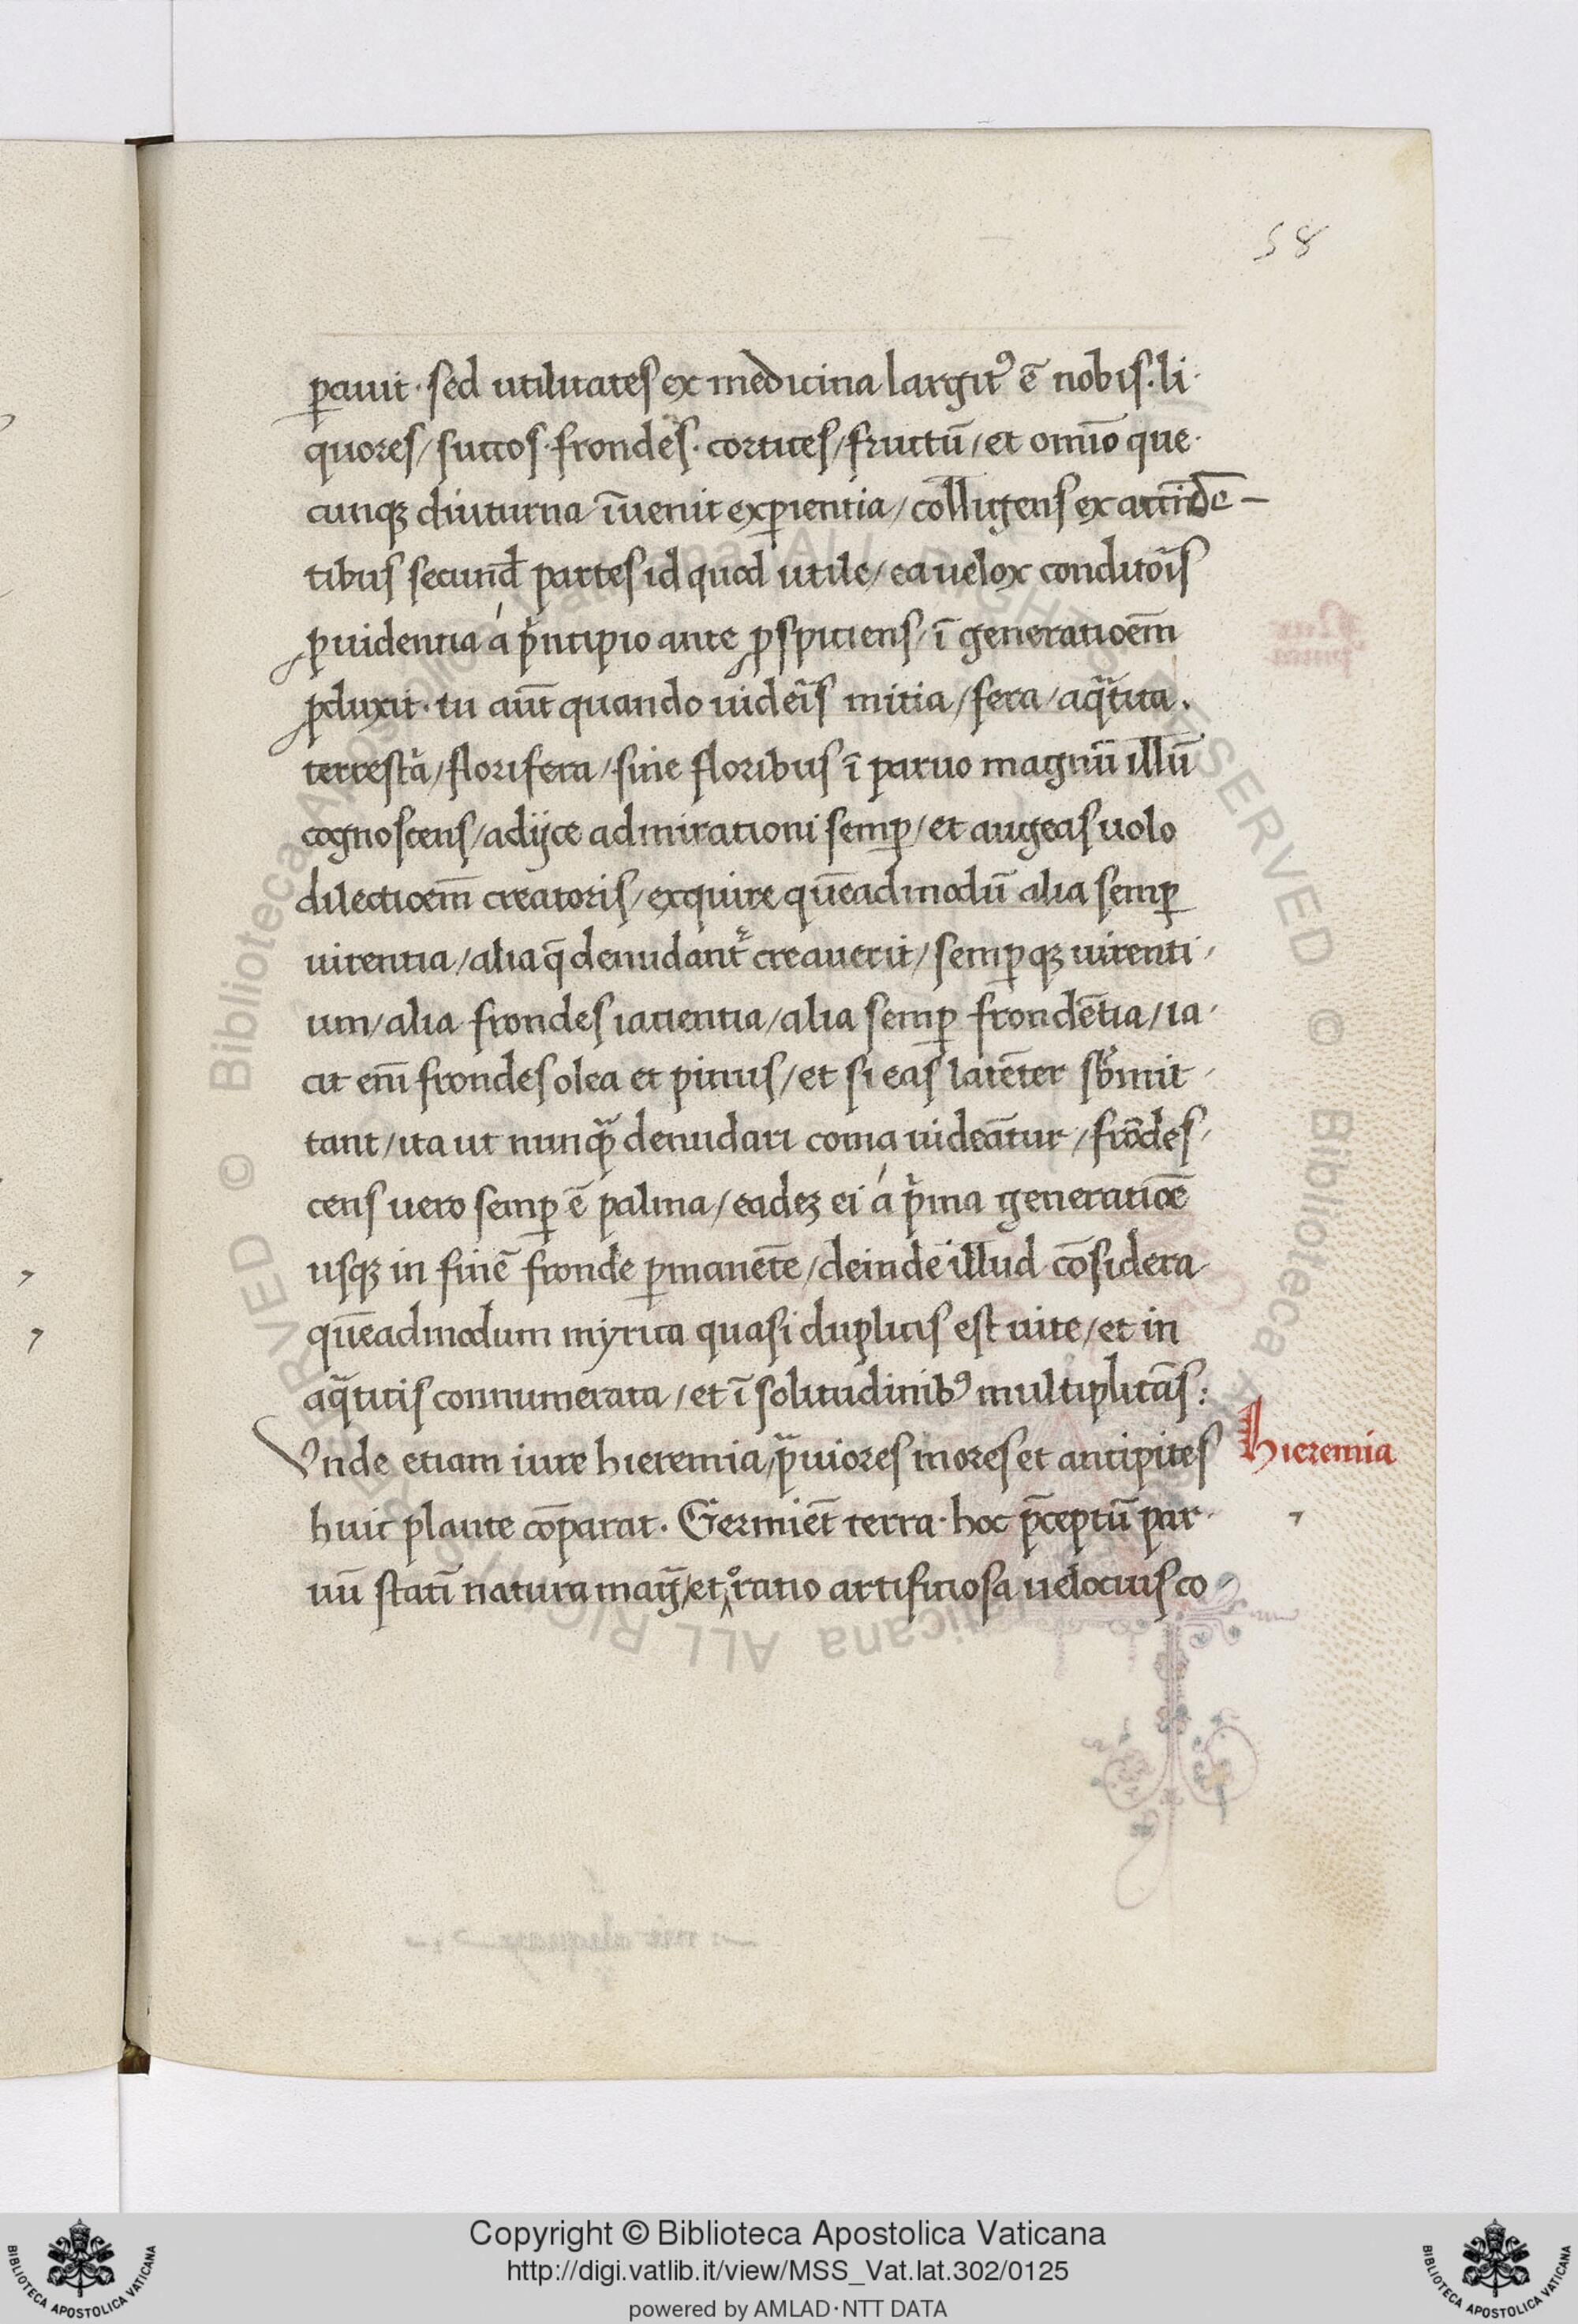 58
ꝑauit · sed utilitates ex medicina largitꝰ ē nobis. li·
quores / succos · frondes · cortices / fructū / et om̄io que·
cunqꝫ diuturna ī uenit exꝑientia / colligens ex accidē–
tibus secund̄ partes id quod utile / ea uelox conditōis
ꝓuidentia á pͥncipio ante ꝓspiciens / ī generatioēm
ꝓduxit · tu aūt quando uideīs mitia / fera / aqͣtica .
terrestͣa / florifera / sine floribus ī paruo magnū illū
cognoscens / adijce admirationi semꝑ / et augeas uolo
dilectioēm creatoris / exquire quēadmodū alia semꝑ
uirentia / alia q̄ denudant᷑ creauerit / semꝑ qꝫ uirenti /
um / alia frondes iacientia / alia semꝑ frondētia / ia ·
cit em̄ frondes olea et pinus / et si eas latēter sb̓mit /
tant / ita ut nunqͣ denudari coma uideātur / frōdes /
cens uero semꝑ ē palma / eadeꝫ ei á pͥma generatioē
usqꝫ in finē fronde ꝑmanēte / deinde illud cōsidera
quēadmodum myrica quasi duplicis est uite / et in
aqͣticis connumerata / et ī solitudinibꝰ multiplicās :
Vnde etiam iure hieremia / pͣuiores mores et ancipites
Hieremia
huic plante cōparat . Germiēt terra · hoc p̄ceptū par ·
uū statī natura / et rͦatio artificiosa uelocius co
Copyright © Biblioteca Apostolica Vaticana
http://digi.vatlib.it/view/MSS_Vat.lat.302/0125
powered by AMLAD·NTT DATA
BIBLIOTECA APOSTOLICA VATICANA
BIBLIOTECA APOSTOLICA VATICANA